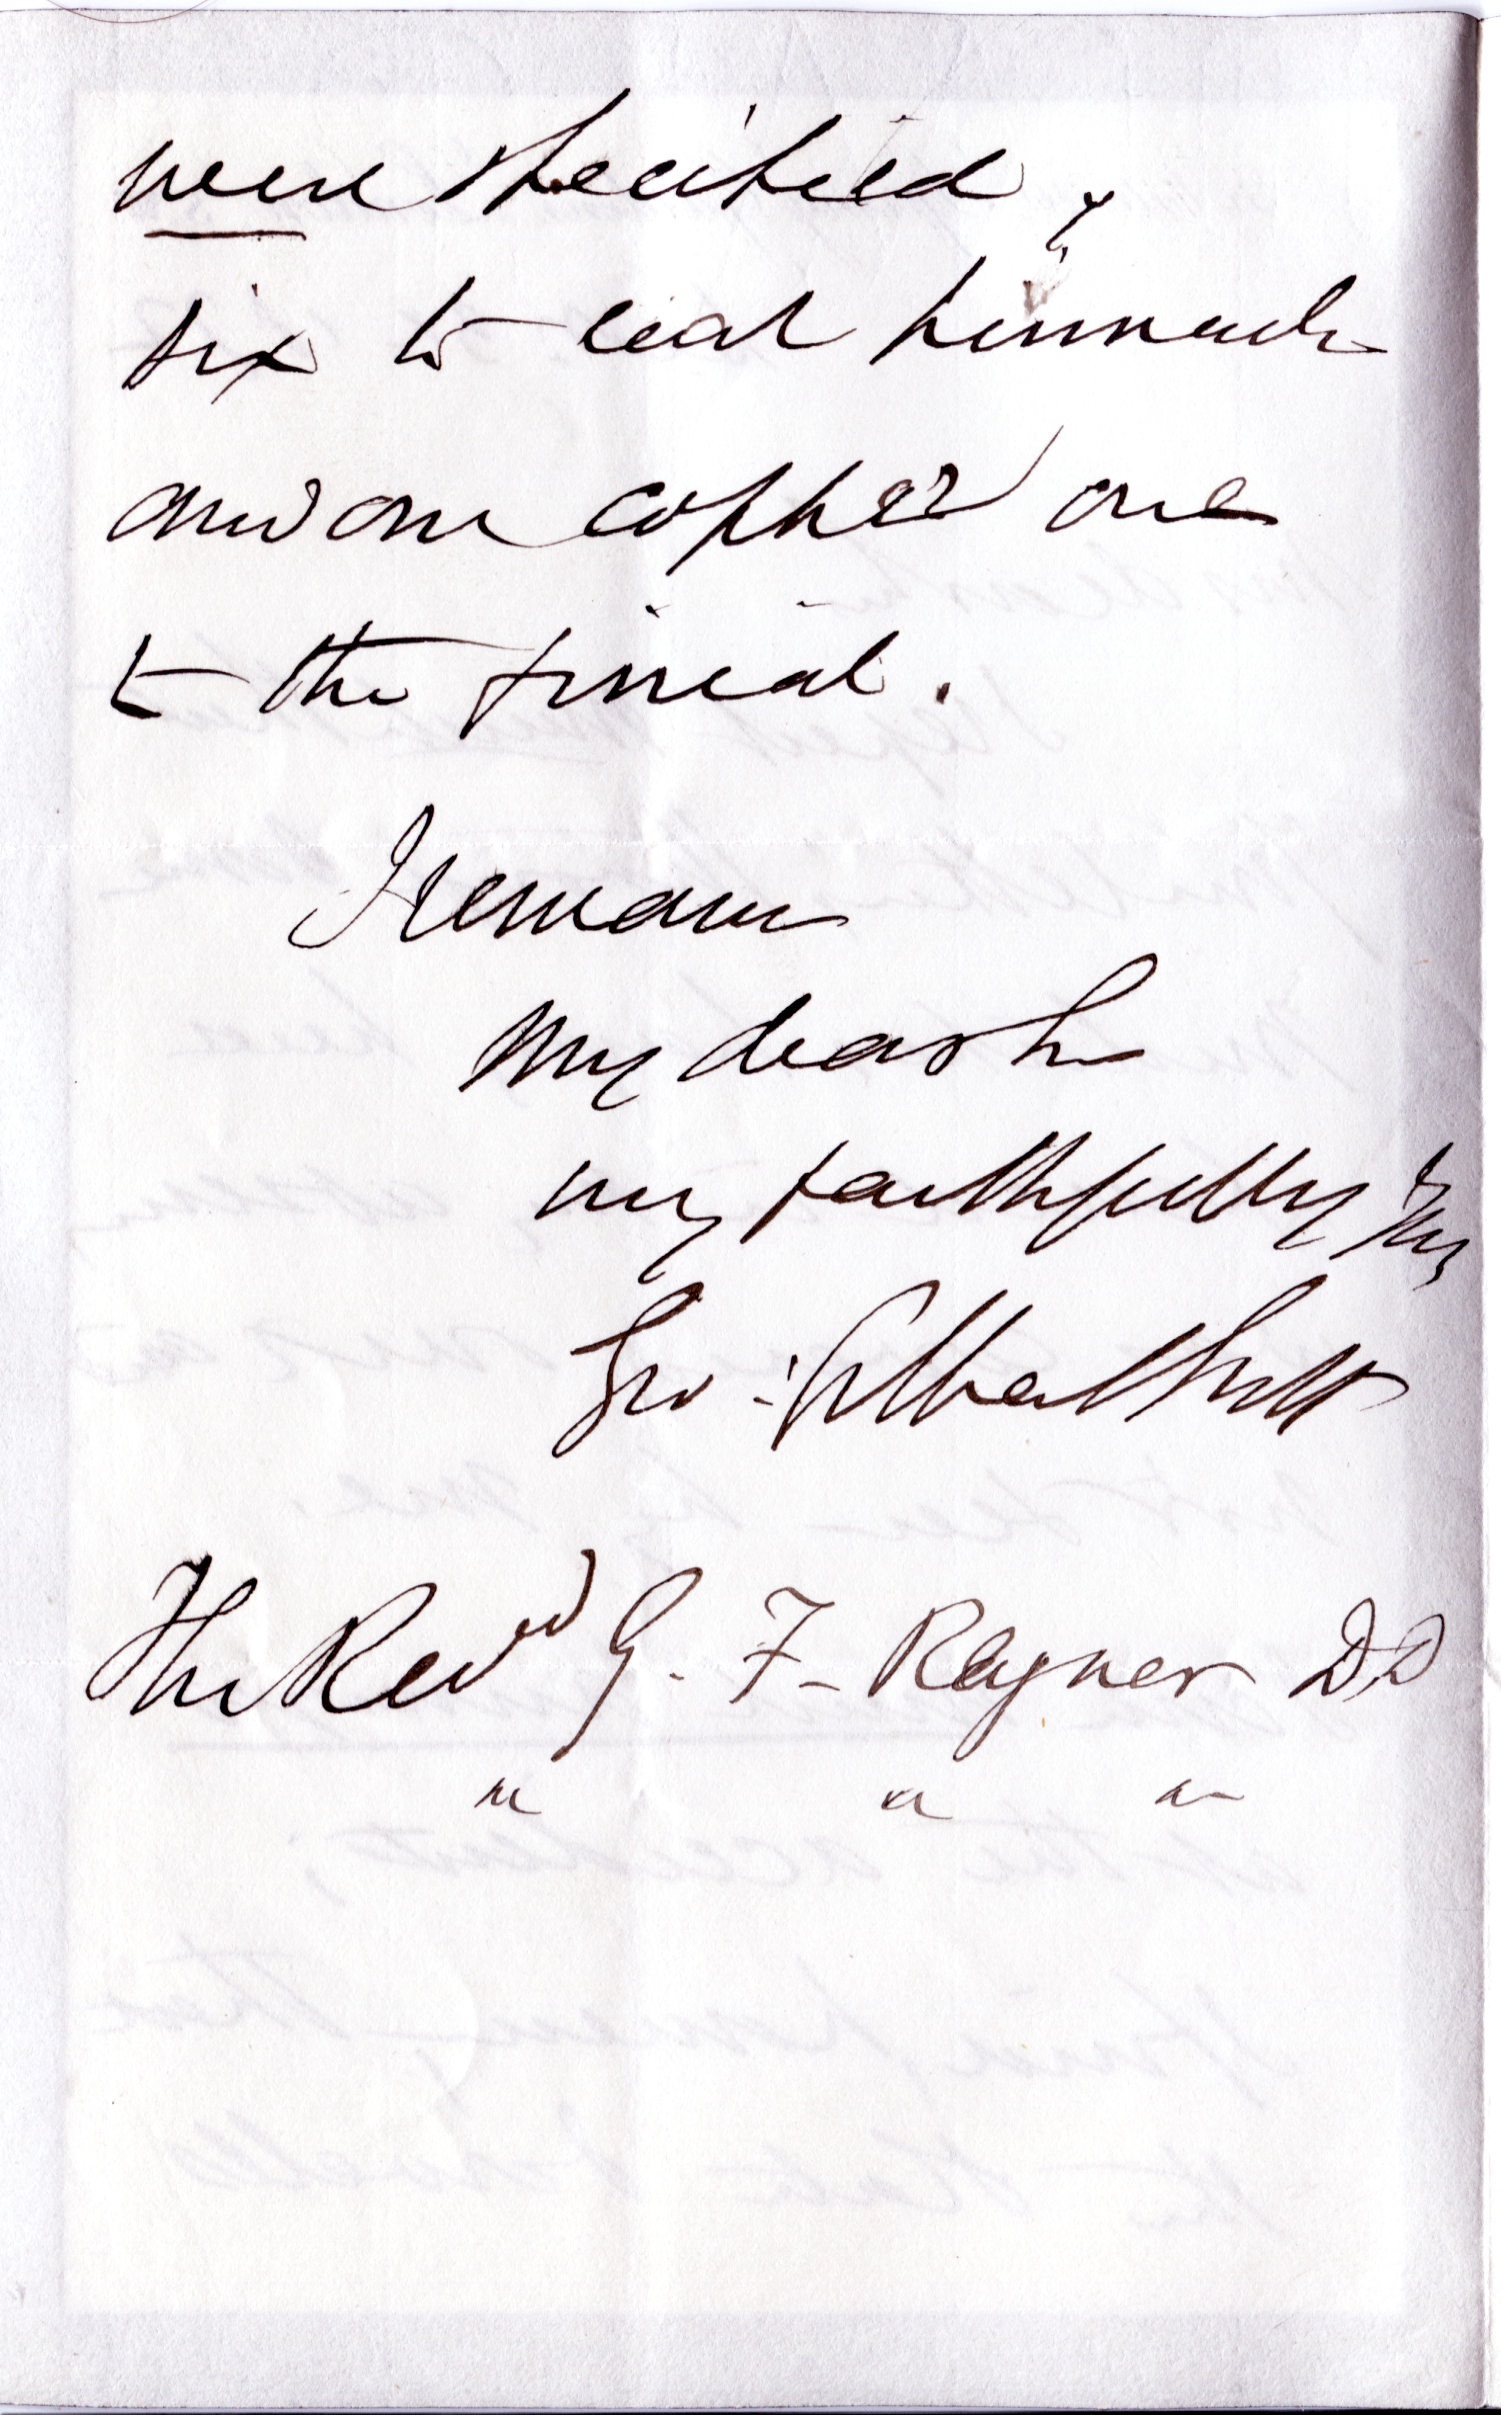 were specified,
six to each pinnacle
and one copper one
to the finial.
I remain
My dear Sir
very faithfully yrs
Geo: Gilbert Scott
The Revd G. F. Reyner DD
" " "